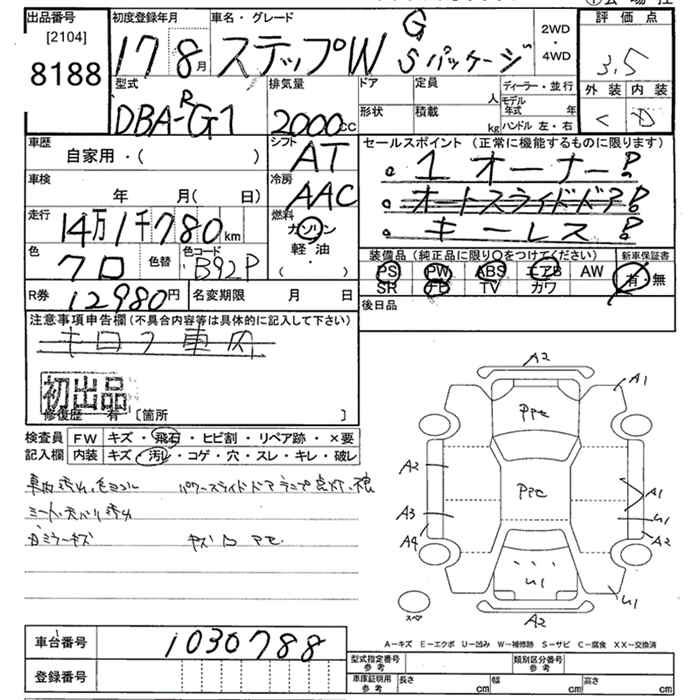 出品番号
[2104]
8188
初度登録年月
17年8月
車名・グレード
ステップW G Sパッケージ
2WD
・
4WD
評価点
3.5
外装 内装
C D
型式
DBA-RG1
排気量
2000cc
ドア
形状
定員
人
積載
kg
ディーラー・並行
モデル年式 年
ハンドル 左・右
車歴
自家用・( )
シフト
AT
車検
年 月( 日)
冷房
AAC
走行
14万1千780km
燃料
ガソリン
軽・油
( ・ )
色
クロ
色替
色コード
B92P
R券
12980円
名変期限 月 日
セールスポイント (正常に機能するものに限ります)
。1オーナー!
。オートスライドドア!
。キーレス!
装備品(純正品に限り○をつけてください)
PS PW ABS エアB AW
SR TV カワ
新車保証書
有・無
後日品
注意事項申告欄(不具合内容等は具体的に記入して下さい)
初出品
修復歴 有 [箇所 ]
検査員 FW キズ・飛石・ヒビ割・リペア跡・×要
記入欄 内装 キズ・汚レ・コゲ・穴・スレ・キレ・破レ
A2
A1
PPC
A2
PPC
A1
A3
U1
A4
A2
U1
U1
A2
スペア
A-キズ E-エクボ U-凹み W-補修跡 S-サビ C-腐食 XX-交換済
車台番号
1030788
登録番号
型式指定番号
参考
類別区分番号
参考
車庫証明用
参考
長さ cm
幅 cm
高さ cm